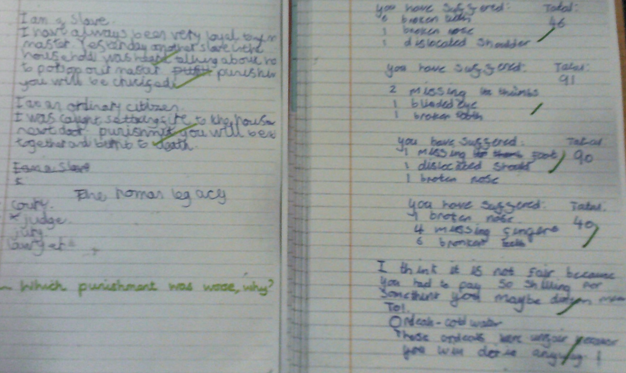 I am a slave.
I have always been very loyal to my
master. Yesterday another slave in the
household was talking about
to poison our master punishment
you will be
I am an ordinary citizen.
I was caught setting fire to the house
next door. punishment you will be
together and to death.
I am a slave
The homas legacy
court
judge
jury
Which punishment was worse, why?
you have suffered: Total:
6 broken teeth 46
1 broken nose
1 dislocated shoulder
you have suffered: Total:
91
2 missing thumbs
1 blinded eye
1 broken tooth
you have suffered: Total:
1 missing foot 90
1 dislocated
1 broken nose
you have suffered: Total:
1 broken nose 40
4 missing fingers
6 broken teeth
I think it is not fair because
you had to pay so shilling for
something you maybe
To1.
cold water
These ordeals were unfair
you will die anyway